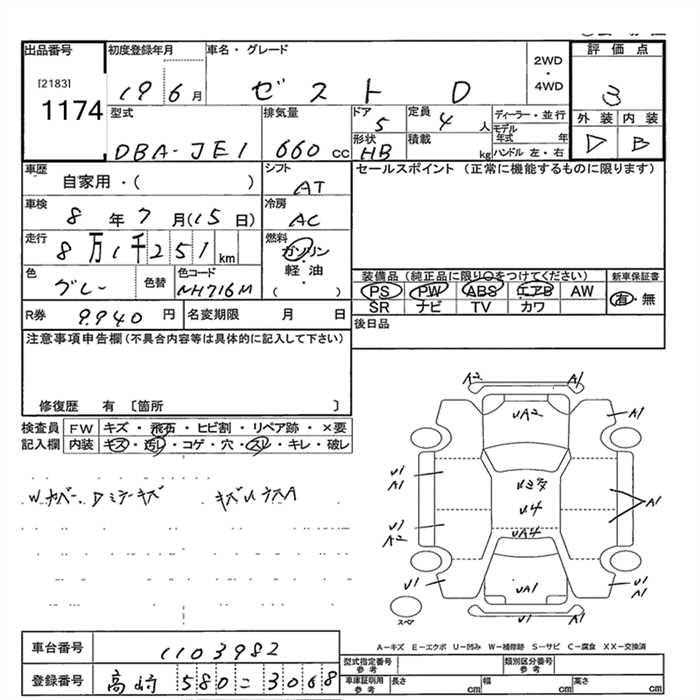 出品番号 初度登録年月 車名・グレード 2WD・4WD 評価点
[2183] 1174 19 6月 ゼスト D 3
型式 排気量 ドア 定員 ディーラー・並行 外装 内装
DBA-JE1 660cc 5 4人 モデル年式 年 D B
形状 積載 ハンドル 左・右
HB kg
車歴 シフト セールスポイント (正常に機能するものに限ります)
自家用・( ) AT
車検 冷房
8年7月(15日) AC
走行 燃料
8万1千251km ガソリン・軽油・( )
色 色替 色コード 装備品 (純正品に限り○をつけてください) 新車保証書
グレー NH716M PS PW ABS エアB AW 有・無
SR ナビ TV カワ
R券 9,940円 名変期限 月 日 後日品
注意事項申告欄 (不具合内容等は具体的に記入して下さい)
修復歴 有 〔箇所 〕
検査員 FW キズ・飛石・ヒビ割・リペア跡・×要
記入欄 内装 キズ・汚れ・コゲ・穴・スレ・キレ・破レ
A2 A1
UA2 A1
U1 A1
U4 A1
U1 A2 UA4
U1 UA1 U1 A1
U1
スペア
A-キズ E-エクボ U-凹み W-補修跡 S-サビ C-腐食 XX-交換済
車台番号 1103982
型式指定番号 参考 類別区分番号 参考
登録番号 高崎 580 こ 3068
車庫証明用 参考 長さ cm 幅 cm 高さ cm